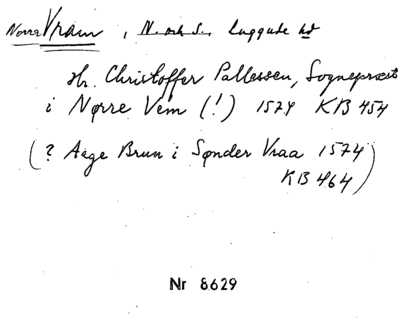 Norra Vram, N. och S. Luggude hd
Hr. Christoffer Pallessen, Sognepræst
i Nørre Vem (!) 1574 KB 454
(? Aage Brun i Sønder Vraa 1574
KB 464)
Nr 8629